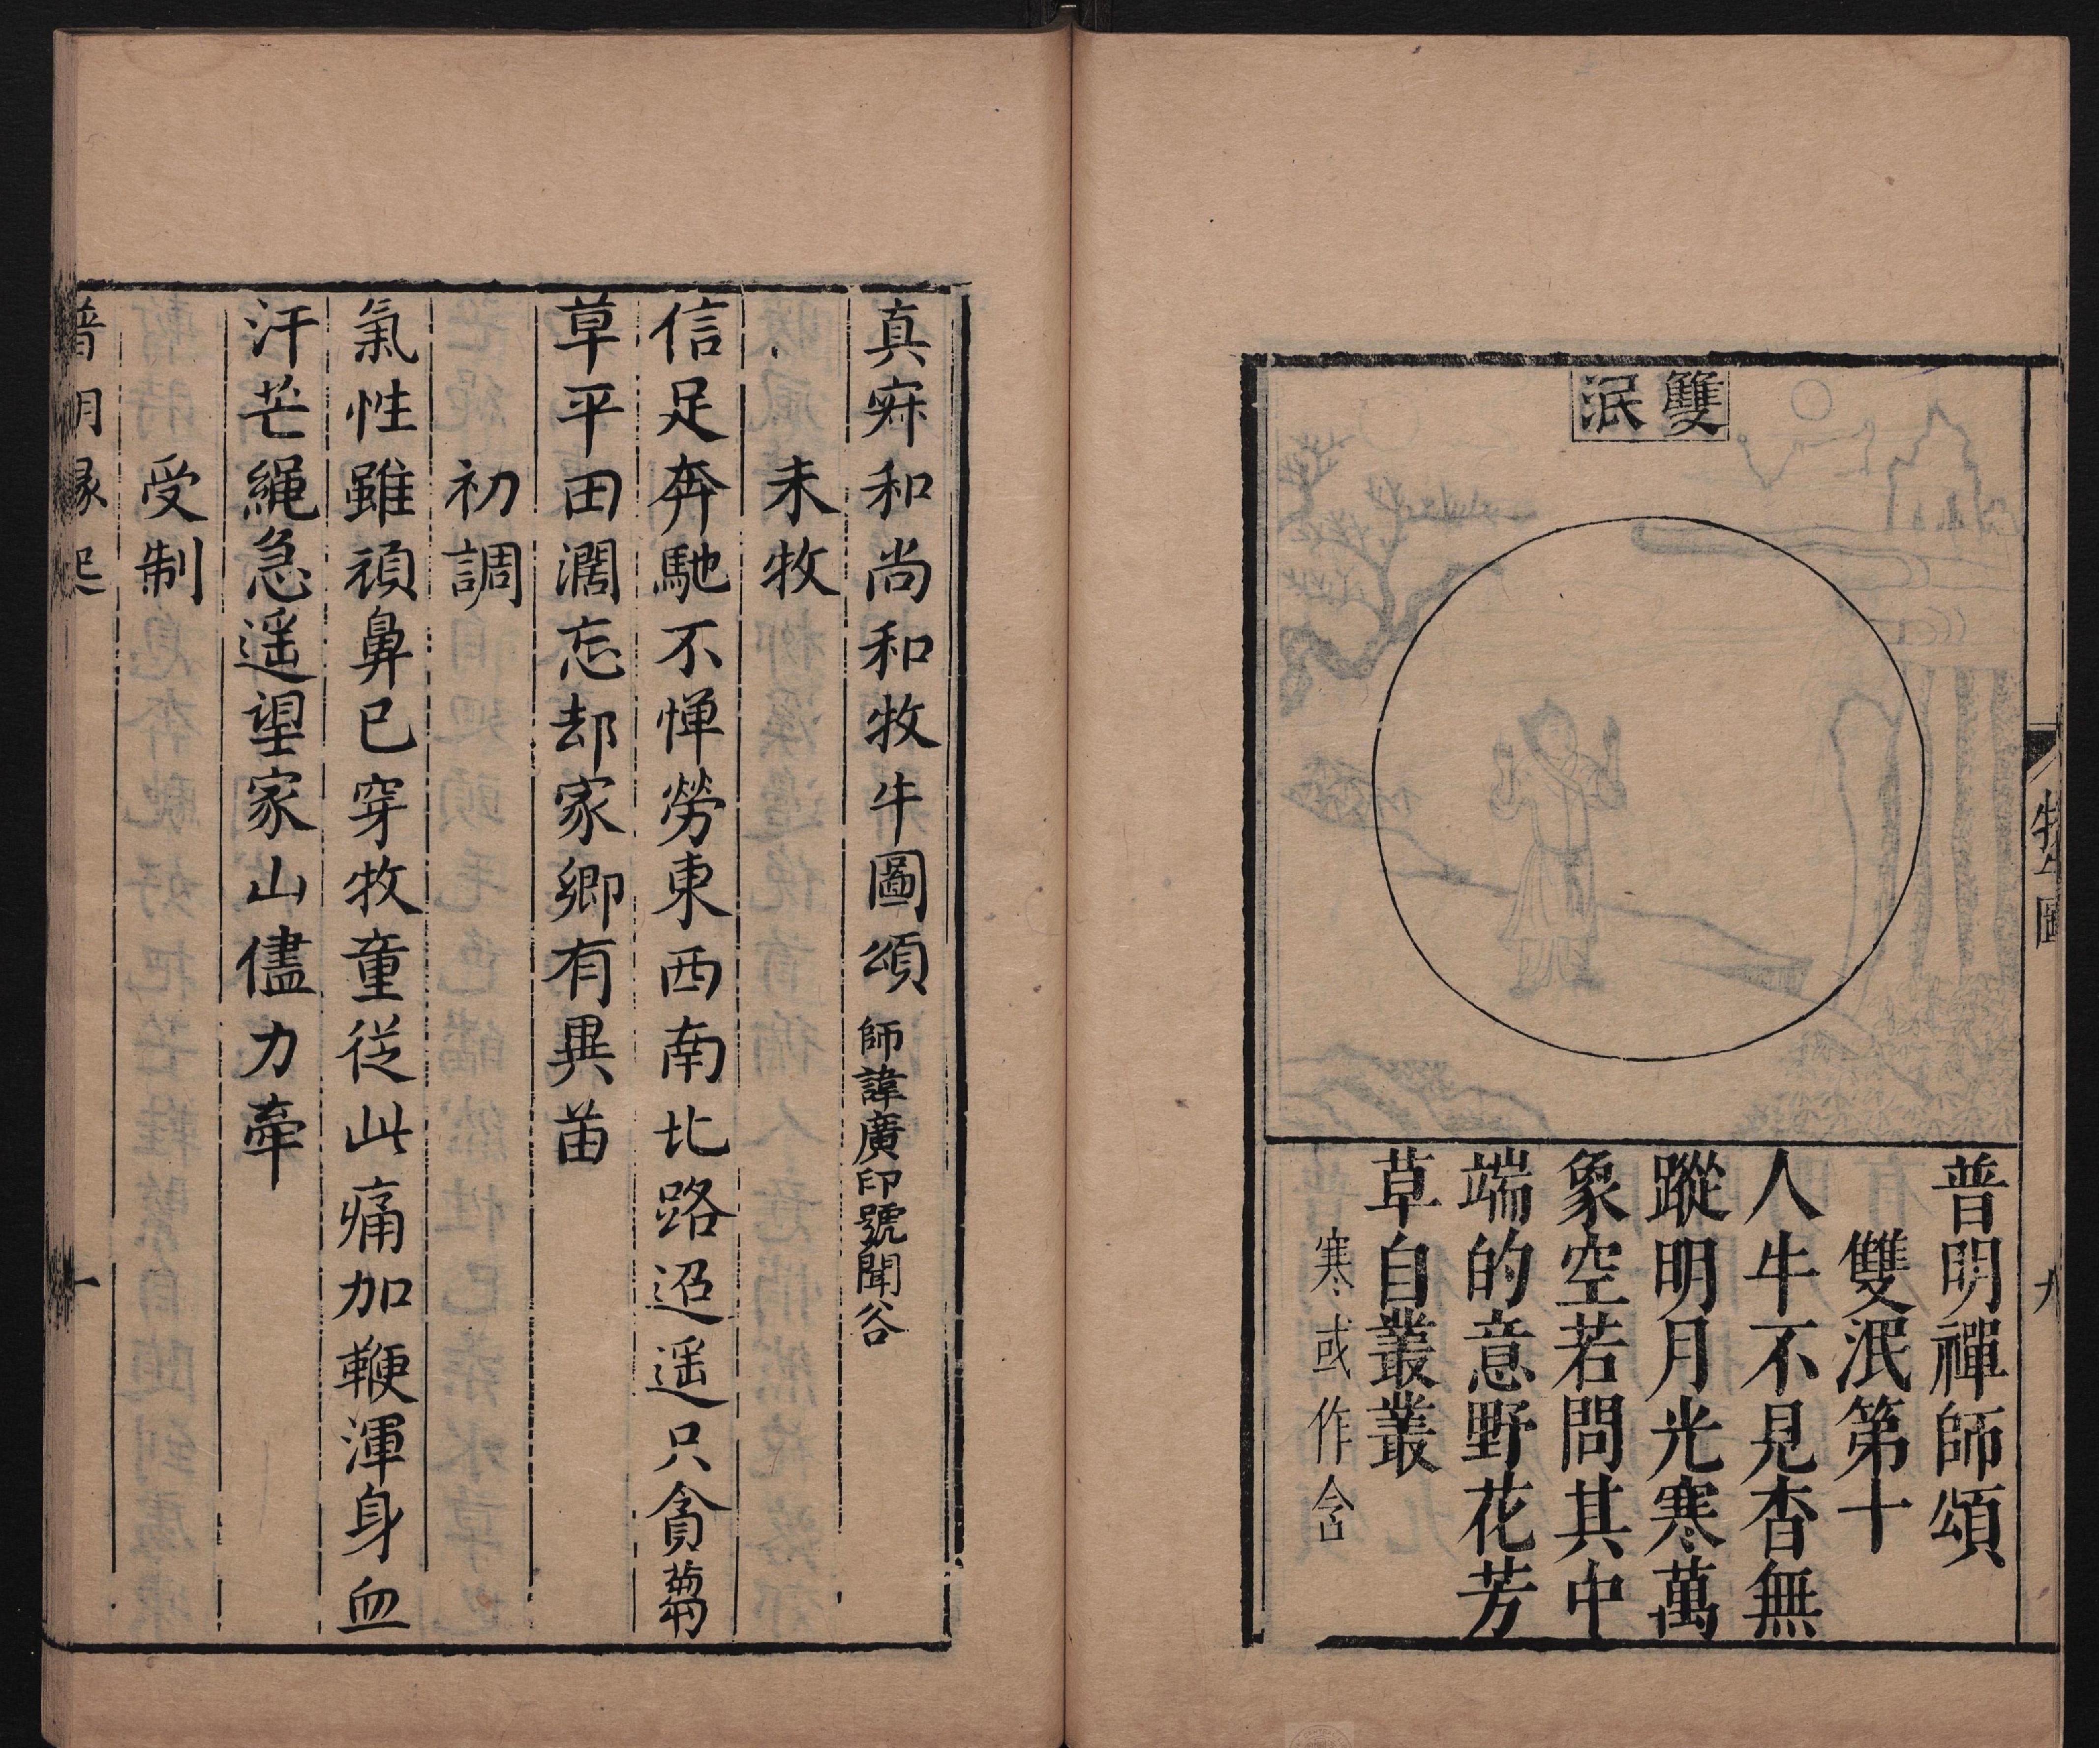 牧牛圖
九
雙泯
普明禪師頌
雙泯第十
人牛不見杳無
蹤明月光寒萬
象空若問其中
端的意野花芳
草自叢叢
寒或作含
真寂和尚和牧牛圖頌 師諱廣印號聞谷
未牧
信足奔馳不憚勞東西南北路迢遥只貪蒭
草平田濶忘却家鄉有異苗
初調
氣性雖頑鼻已穿牧童從此痛加鞭渾身血
汗芒繩急遥望家山儘力牽
受制
普明
一